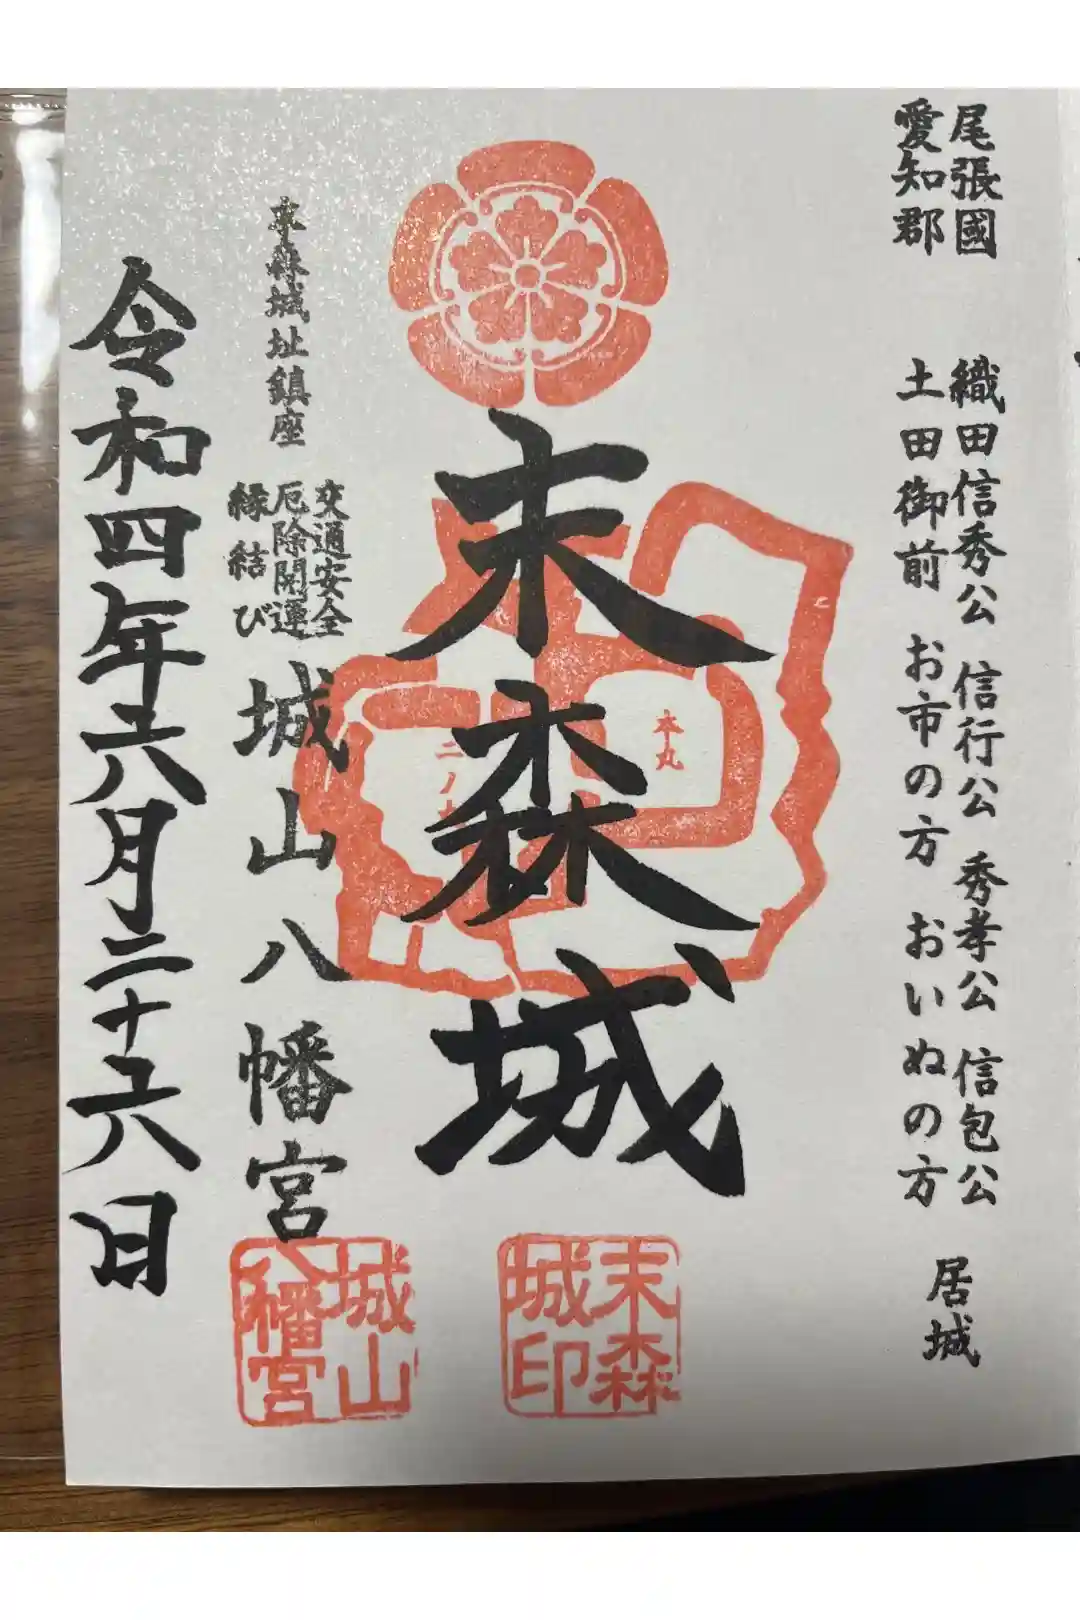 尾張國
愛知郡
織田信秀公 信行公 秀孝公 信包公
土田御前 お市の方 おいぬの方
居城
末森城
本丸
二ノ丸
末森城印
末森城址鎮座
交通安全
厄除開運
縁結び
城山八幡宮
城山八幡宮
令和四年六月二十六日